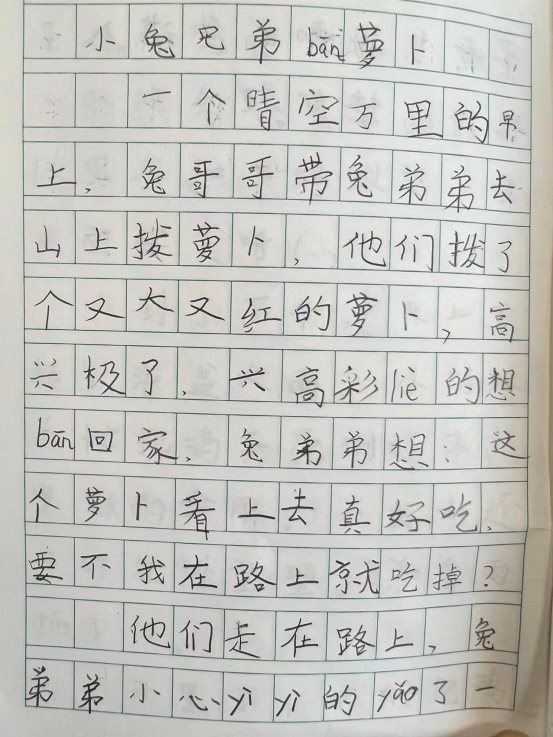 小兔兄弟bān萝卜
一个晴空万里的早
上，兔哥哥带兔弟弟去
山上拨萝卜，他们拨了
个又大又红的萝卜，高
兴极了，兴高彩liè的想
bān回家，兔弟弟想：这
个萝卜看上去真好吃，
要不我在路上就吃掉？
他们走在路上，兔
弟弟小心yìyì的yǎo了一